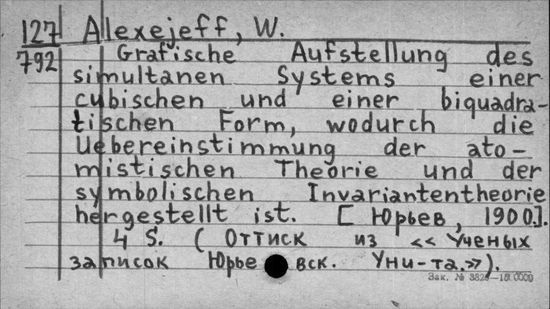 127 Alexejeff, W.
792 Grafische Aufstellung des
simultanen Systems einer
cubischen und einer biquadra-
tischen Form, wodurch die
Uebereinstimmung der ato-
mistischen Theorie und der
symbolischen Invariantentheorie
hergestellt ist. [Юрьев, 1900.].
4 S. (Оттиск из «Ученых
записок Юрьевск. Уни-та.»).
Зак. №